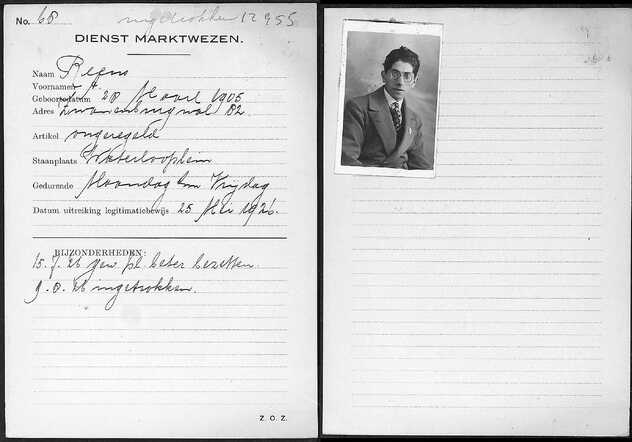 No. 68 ingetrokken 12955
DIENST MARKTWEZEN.
Naam Regns
Voornamen A.
Geboortedatum 20 Maart 1905
Adres Zwanenburgwal 82.
Artikel ongeregeld
Staanplaats Waterlooplein
Gedurende Maandag t/m Vrijdag
Datum uitreiking legitimatiebewijs 25 Mei 1926.
BIJZONDERHEDEN:
15.7.26 gew. pl. beter bezetten.
9.8.26 ingetrokken.
Z. O. Z.